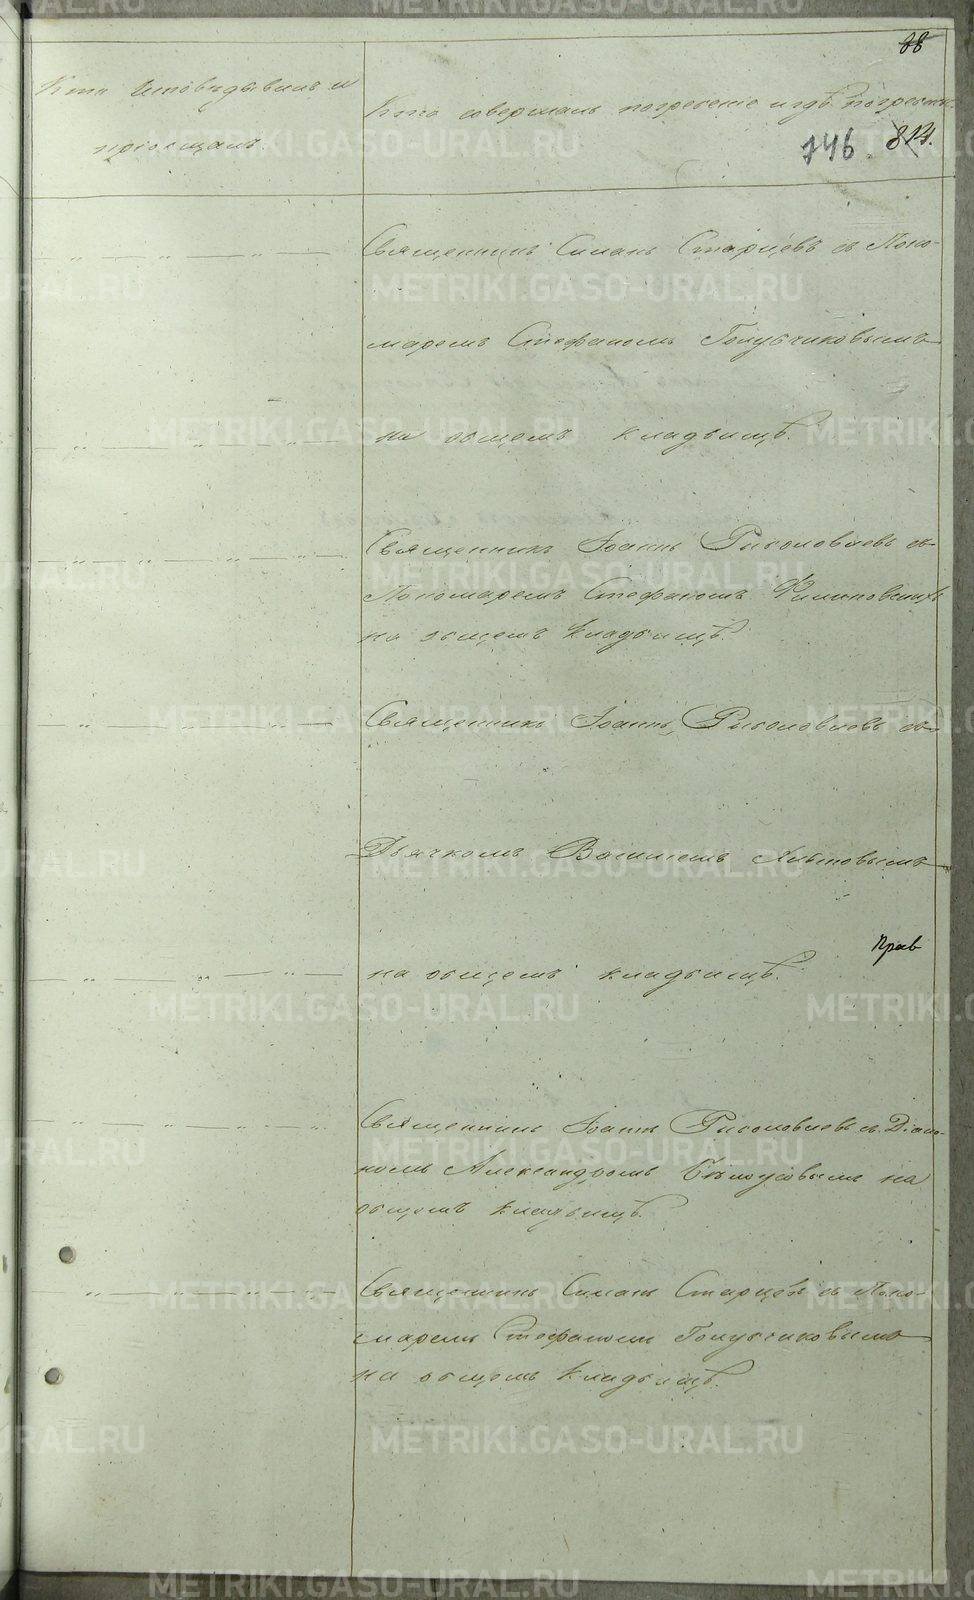 88
Кто исповѣдывалъ и
пріобщалъ.
Кто совершалъ погребеніе и гдѣ погребены.
746 814.
Священникъ Симонъ Старцевъ съ Поно-
маремъ Стефаномъ Голубчиковымъ
на общемъ кладбищѣ.
Священникъ Іоаннъ съ
Пономаремъ Стефаномъ
на общемъ кладбищѣ.
Священникъ Іоаннъ съ
Дьячкомъ Василіемъ
Прав
на общемъ кладбищѣ.
Священникъ Іоаннъ съ Діако-
номъ Александромъ Бѣлоусовымъ на
общемъ кладбищѣ.
Священникъ Симонъ Старцевъ съ Поно-
маремъ Стефаномъ Голубчиковымъ
на общемъ кладбищѣ.
METRIKI.GASO-URAL.RU